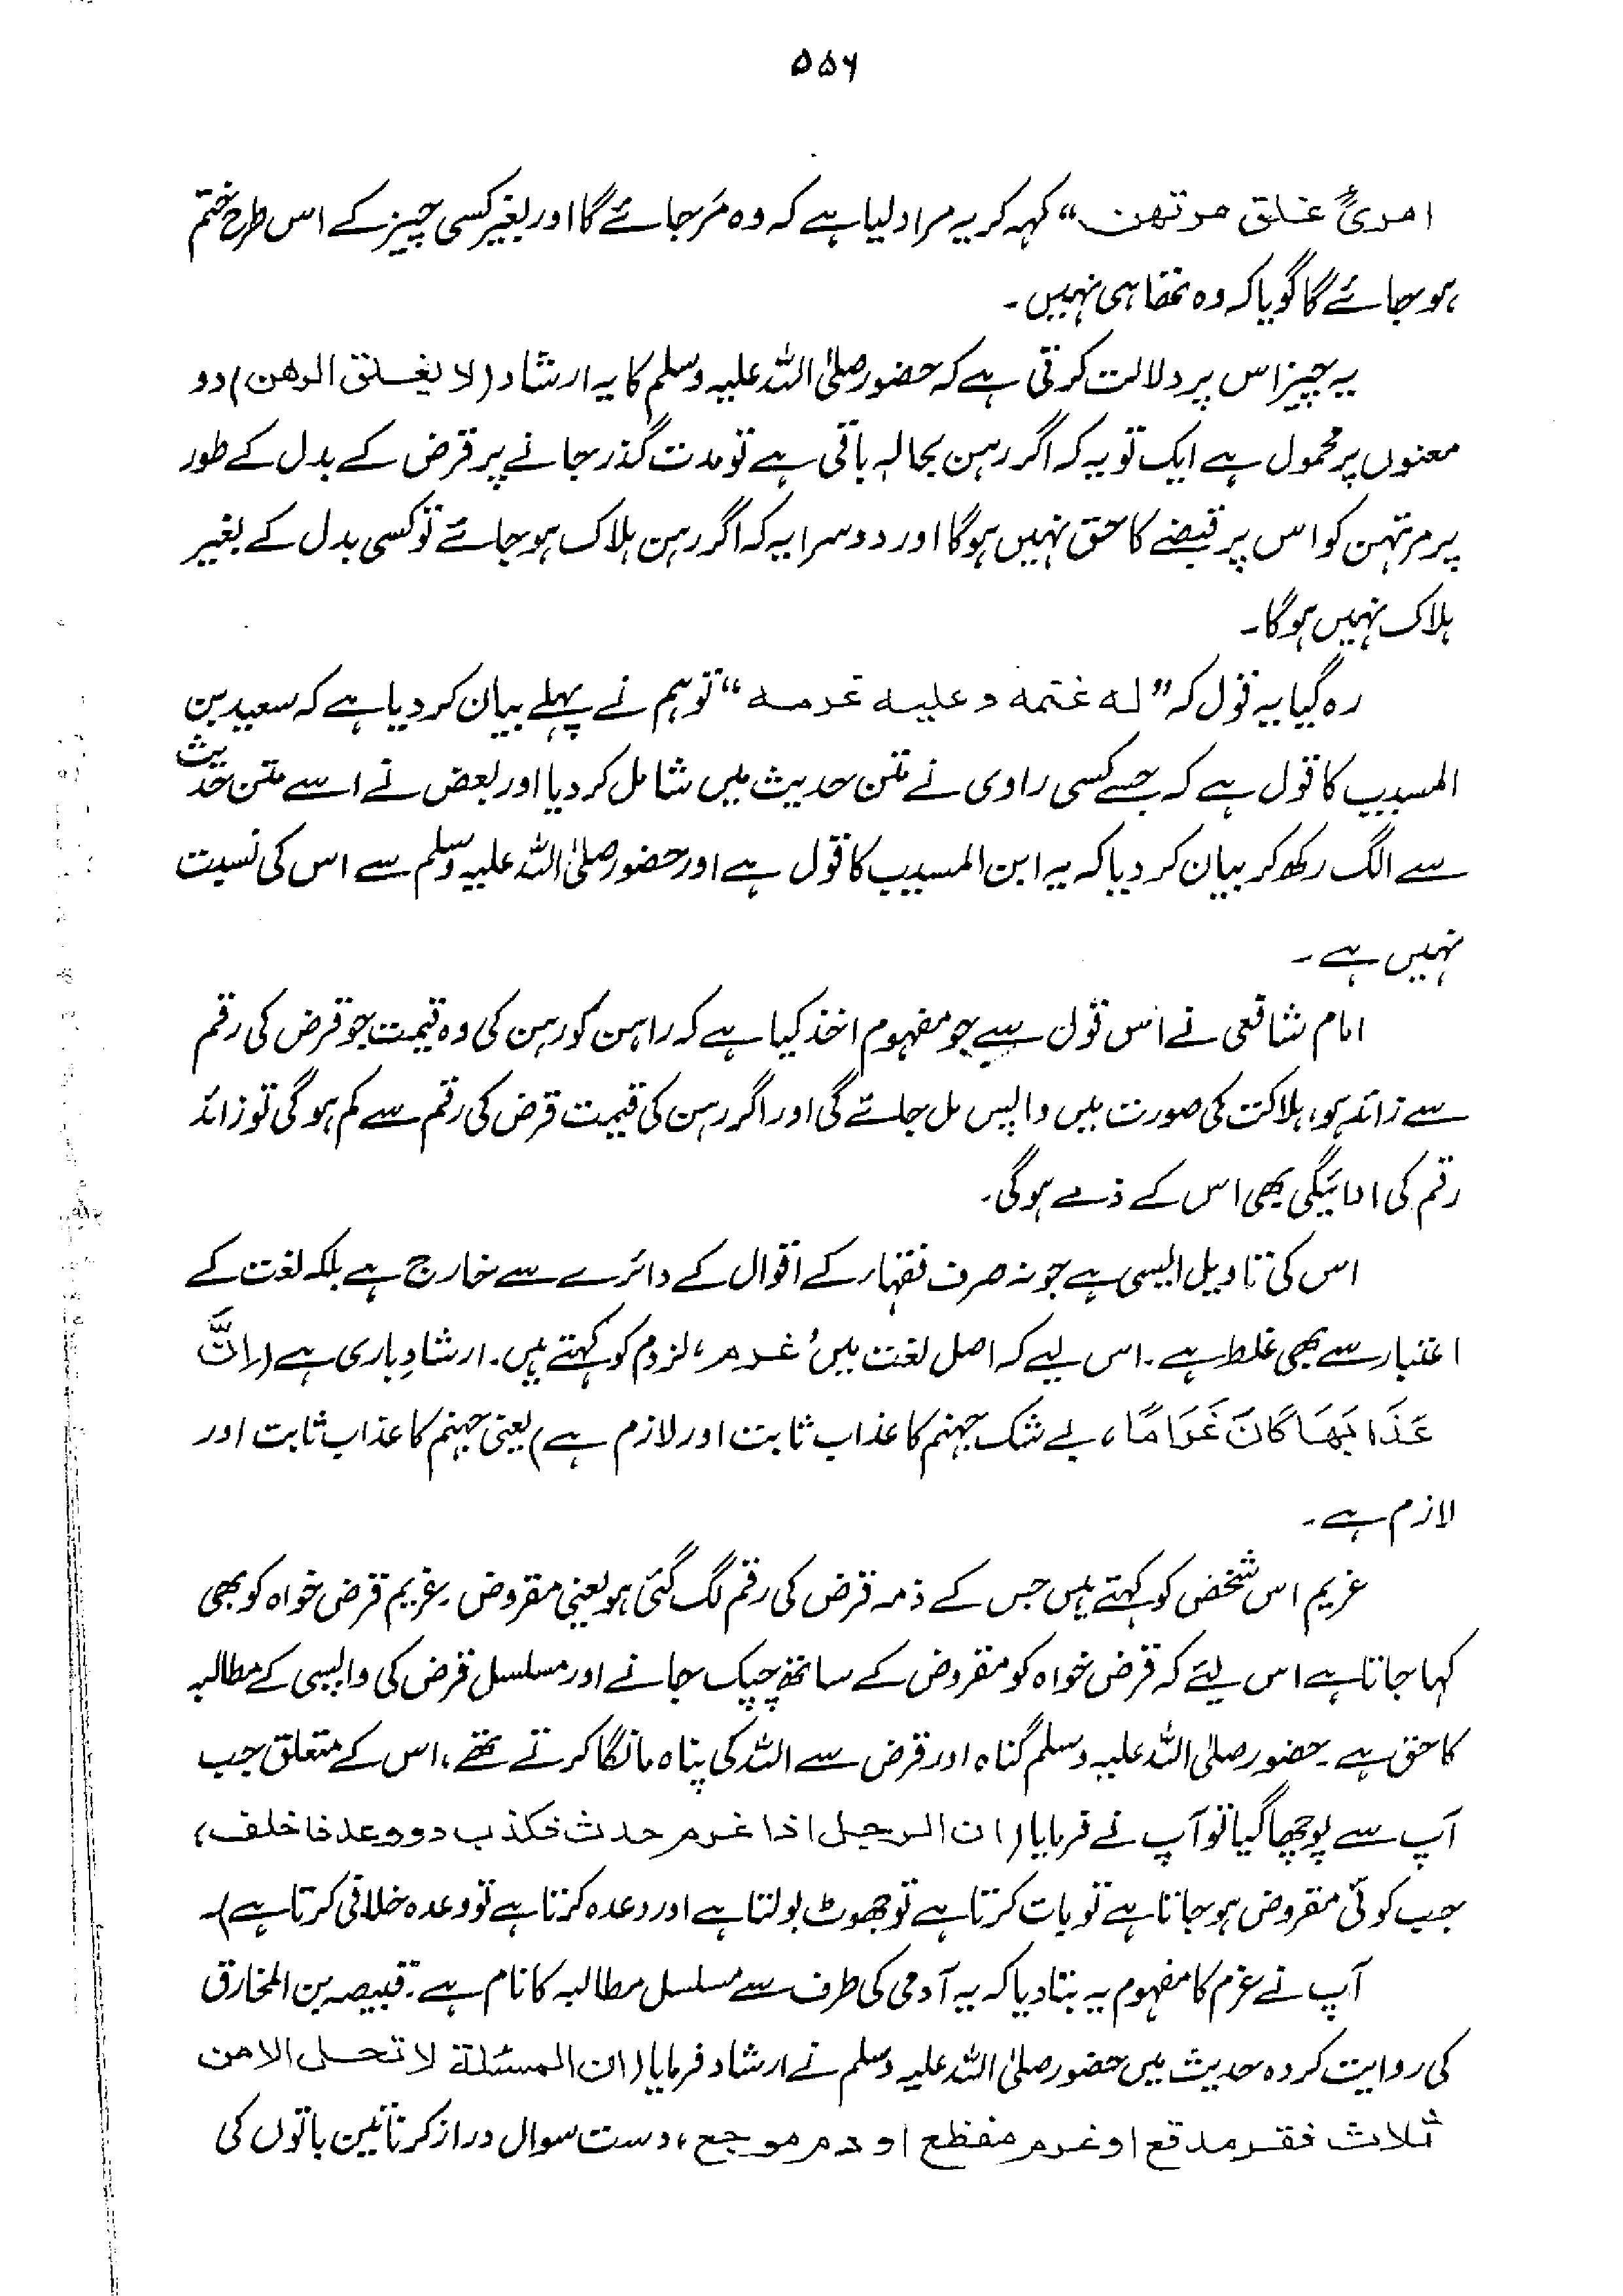 ۵۵۶
امریً غلق مرتھن“ کہہ کر یہ مراد لیا ہے کہ وہ مَر جائے گا اور بغیر کسی چیز کے اس طرح ختم
ہو جائے گا گویا کہ وہ تھا ہی نہیں۔
یہ چیز اس پر دلالت کرتی ہے کہ حضور صلی اللہ علیہ وسلم کا یہ ارشاد (لا یغلق الرھن) دو
معنوں پر محمول ہے ایک تو یہ کہ اگر رہن بحالہ باقی ہے تو مدت گذر جانے پر قرض کے بدل کے طور
پر مرتہن کو اس پر قبضے کا حق نہیں ہوگا اور دوسرا یہ کہ اگر رہن ہلاک ہو جائے تو کسی بدل کے بغیر
ہلاک نہیں ہوگا۔
رہ گیا یہ قول کہ ”لہ غنمہ وعلیہ غرمہ“ تو ہم نے پہلے بیان کر دیا ہے کہ سعید بن
المسیب کا قول ہے کہ جسے کسی راوی نے متن حدیث میں شامل کر دیا اور بعض نے اسے متن حدیث
سے الگ رکھ کر بیان کر دیا کہ یہ ابن المسیب کا قول ہے اور حضور صلی اللہ علیہ وسلم سے اس کی نسبت
نہیں ہے۔
امام شافعی نے اس قول سے جو مفہوم اخذ کیا ہے کہ راہن کو رہن کی وہ قیمت جو قرض کی رقم
سے زائد ہو، ہلاکت کی صورت میں واپس مل جائے گی اور اگر رہن کی قیمت قرض کی رقم سے کم ہوگی تو زائد
رقم کی ادائیگی بھی اس کے ذمے ہوگی۔
اس کی تاویل ایسی ہے جو نہ صرف فقہار کے اقوال کے دائرے سے خارج ہے بلکہ لغت کے
اعتبار سے بھی غلط ہے۔ اس لیے کہ اصل لغت میں ’غرم‘ لزوم کو کہتے ہیں۔ ارشادِ باری ہے (اِنَّ
عَذَابَھَا کَانَ غَرَامًا، بے شک جہنم کا عذاب ثابت اور لازم ہے) یعنی جہنم کا عذاب ثابت اور
لازم ہے۔
غریم اس شخص کو کہتے ہیں جس کے ذمہ قرض کی رقم لگ گئی ہو یعنی مقروض۔ غریم قرض خواہ کو بھی
کہا جاتا ہے اس لیئے کہ قرض خواہ کو مقروض کے ساتھ چپک جانے اور مسلسل قرض کی واپسی کے مطالبہ
کا حق ہے۔ حضور صلی اللہ علیہ وسلم گناہ اور قرض سے اللہ کی پناہ مانگا کرتے تھے، اس کے متعلق جب
آپ سے پوچھا گیا تو آپ نے فرمایا (ان الرجل اذا غرم حدث فکذب دووعد فاخلف،
جب کوئی مقروض ہو جاتا ہے تو بات کرتا ہے تو جھوٹ بولتا ہے اور وعدہ کرتا ہے تو وعدہ خلافی کرتا ہے)۔
آپ نے غرم کا مفہوم یہ بتا دیا کہ یہ آدمی کی طرف سے مسلسل مطالبہ کا نام ہے۔ قبیصہ بن المخارق
کی روایت کردہ حدیث میں حضور صلی اللہ علیہ وسلم نے ارشاد فرمایا (ان المسئلة لا تحل الا من
ثلاث فقر مدقع او غرم مفظع او دم موجع، دست سوال دراز کرنا تین باتوں کی